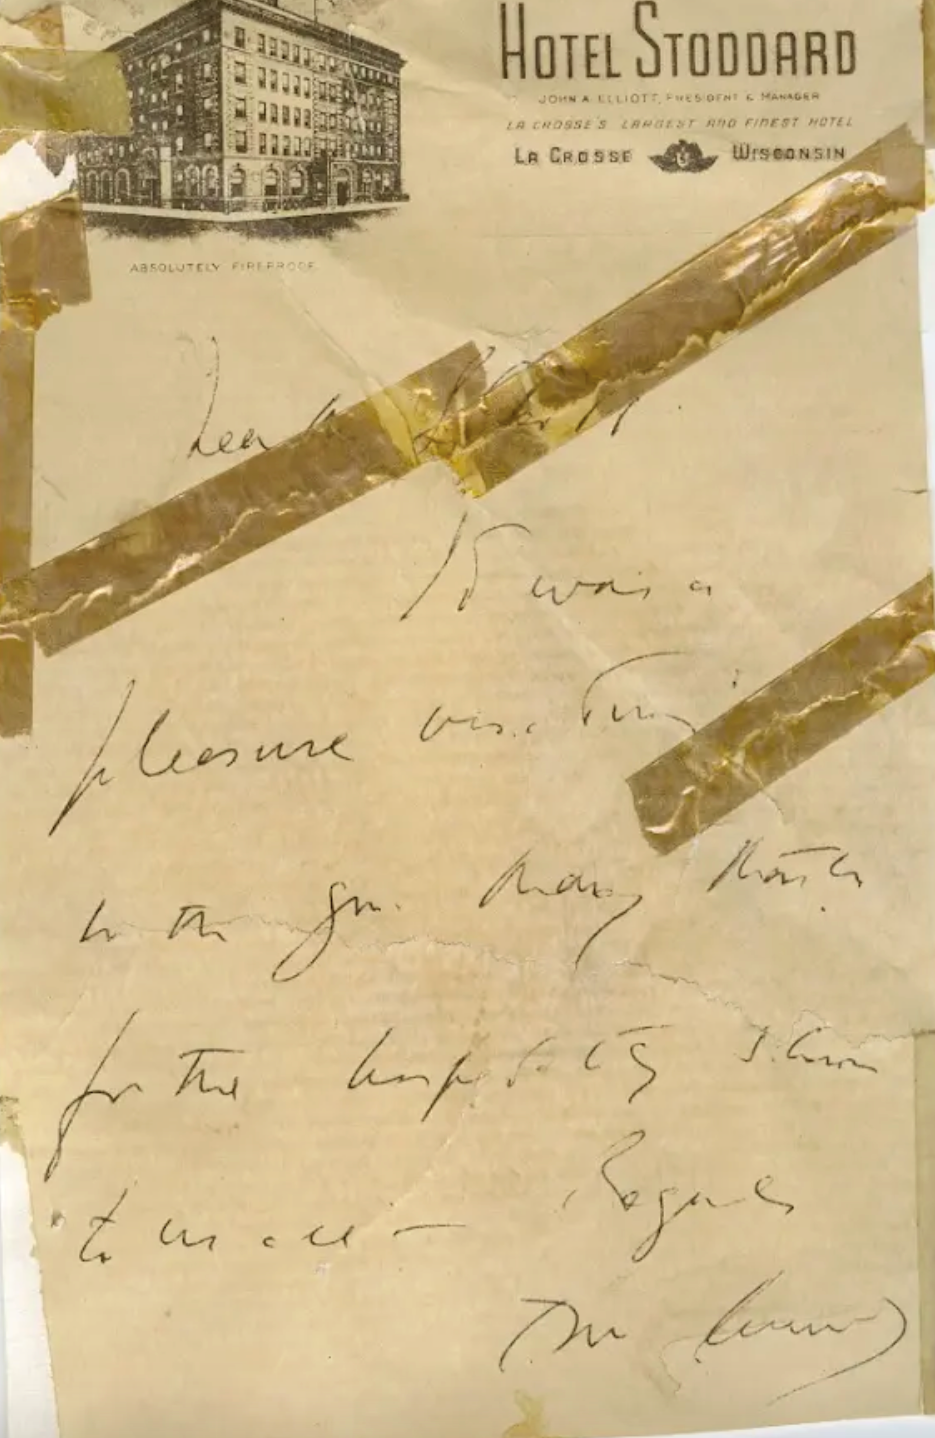 HOTEL STODDARD
JOHN A. ELLIOTT, PRESIDENT & MANAGER
LA CROSSE'S LARGEST AND FINEST HOTEL
LA CROSSE WISCONSIN
ABSOLUTELY FIREPROOF
Dear
It was a
pleasure visiting
with you. Many thanks
for the hospitality shown
to us all —
Regards